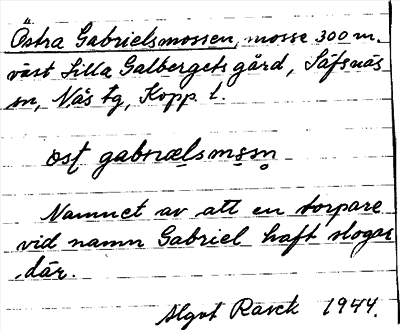 Östra Gabrielsmossen, mosse 300 m.
väst Lilla Galbergets gård, Säfsnäs
sn, Nås tg, Kopp. l.
ost gabriælsmosn
Namnet av att en torpare
vid namn Gabriel haft slogar
där.
Algot Rasck 1944.